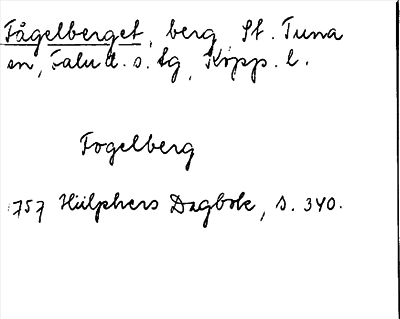 Fågelberget, berg St. Tuna
sn, Falu d. s. tg, Kopp. l.
Fogelberg
757 Hülphers Dagbok, s. 340.